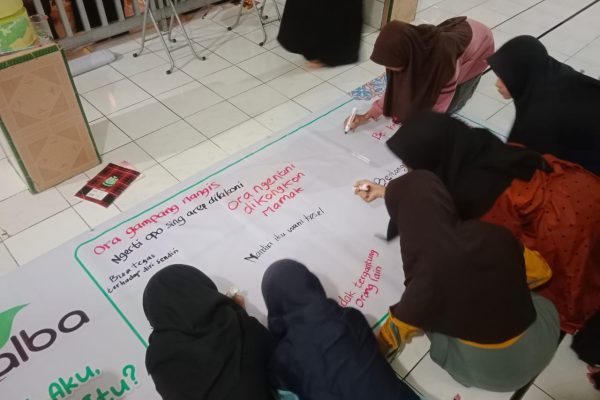 Ora gampang nangis
Ngerti opo sing arep dilakoni
Bisa tegas
terhadap diri sendiri
Ora ngentèni
dikongkon
Mamak
Mandiri itu wani kesel
Be
tergantung
Orang lain
alba
AKU,
itu?